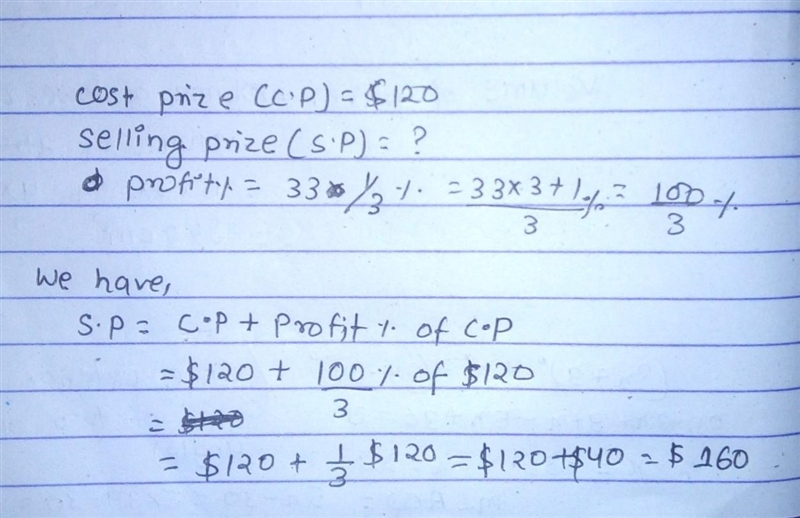 cost prize (C.P) = $120
selling prize (S.P) = ?
profit% = 33 1/3 % = 33×3+1/3 % = 100/3 %
We have,
S.P = C.P + Profit % of C.P
= $120 + 100/3 % of $120
= $120
= $120 + 1/3 $120 = $120+$40 = $160